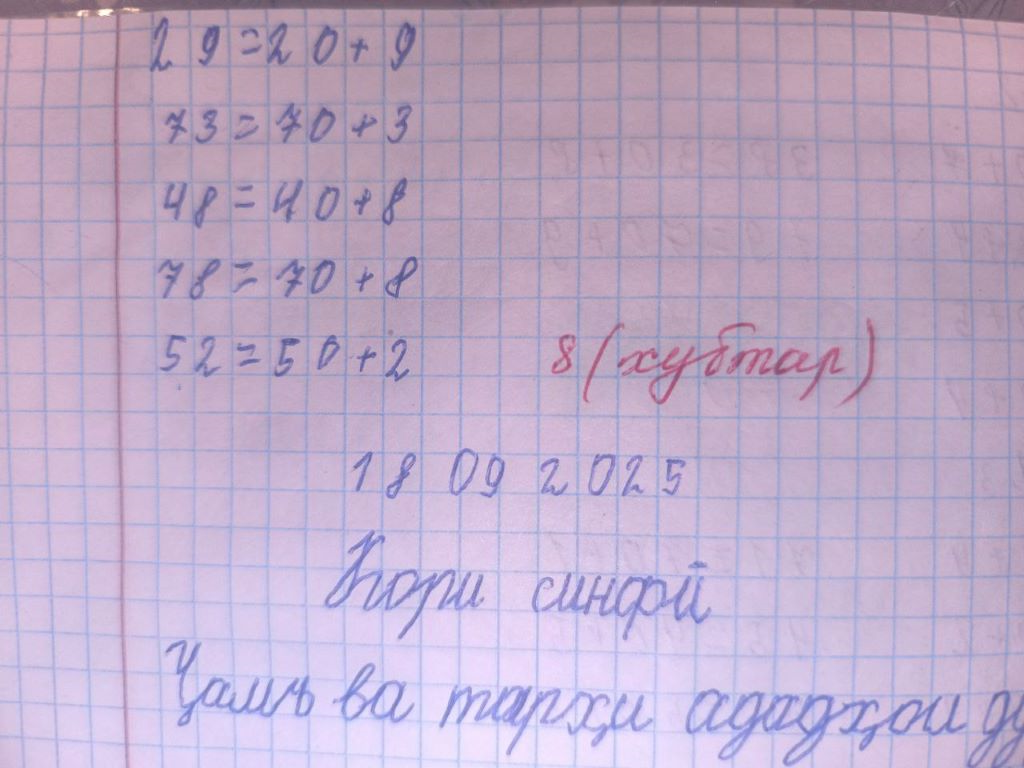 29=20+9
73=70+3
48=40+8
78=70+8
52=50+2 8 (хубтар)
18 09 2025
Кори синфӣ
Ҷамъ ва тарҳи ададҳои ду